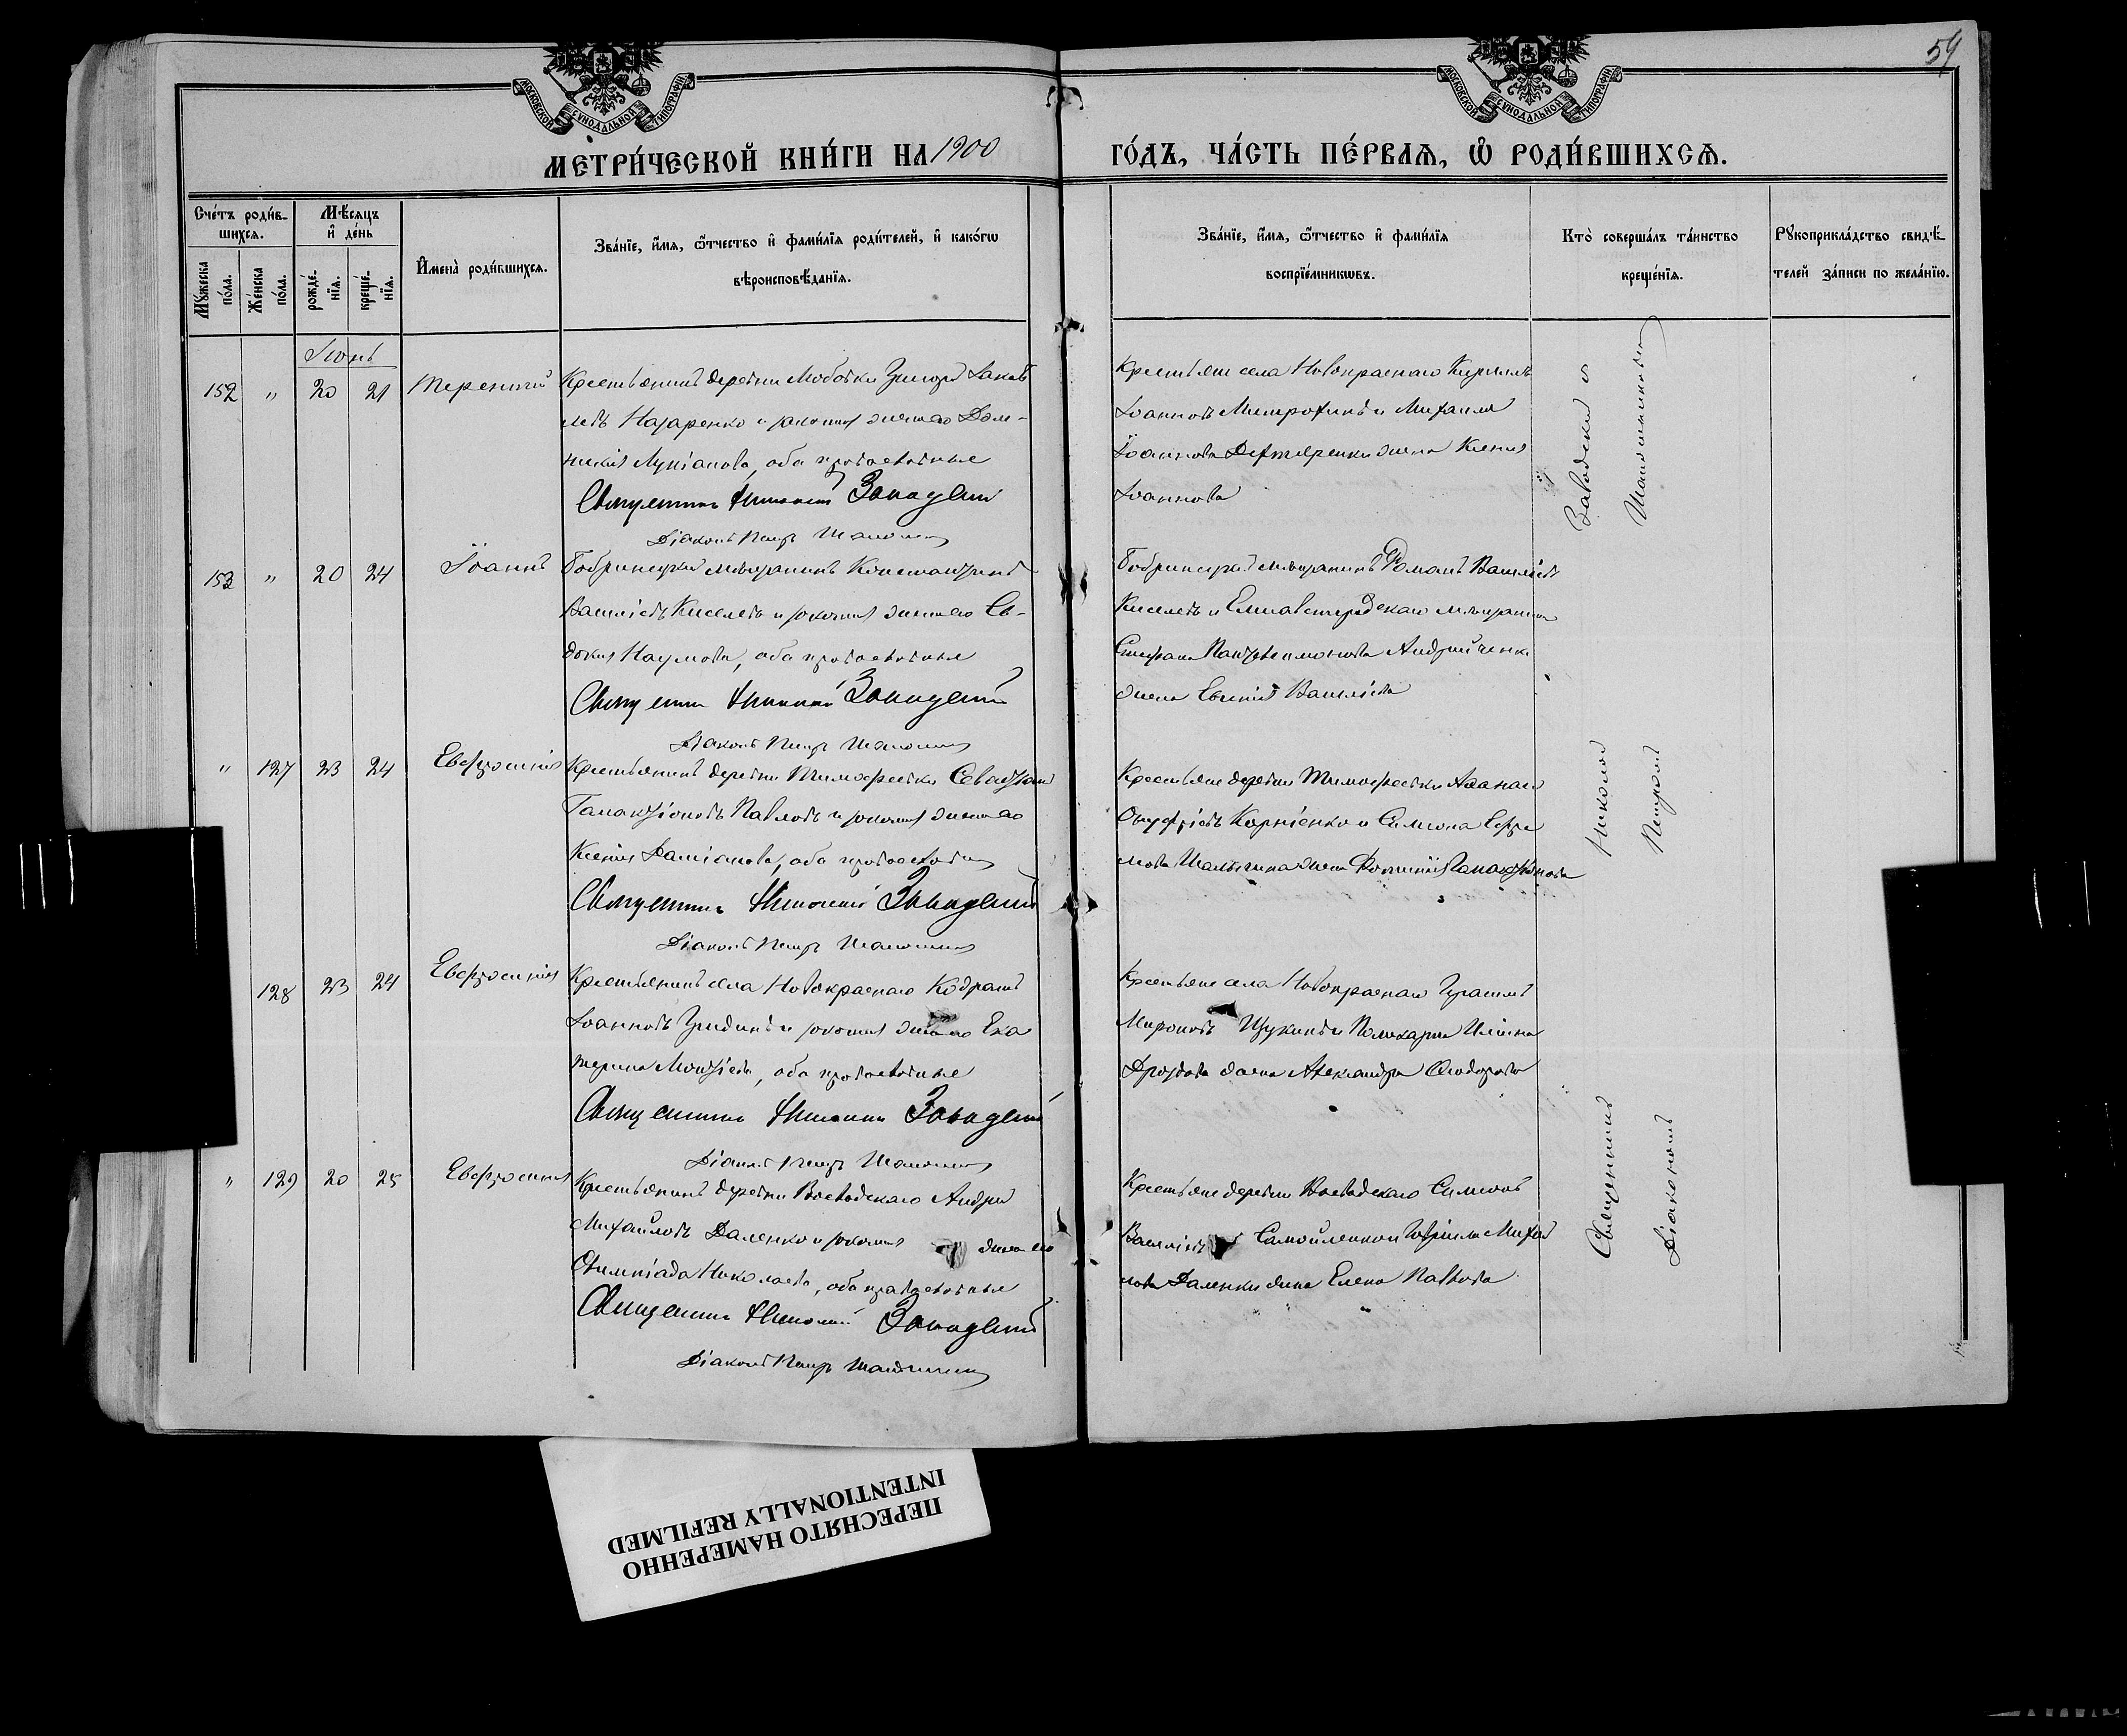 59
МОСКОВСКОЙ СѴНОДАЛЬНОЙ ТИПОГРАФІИ
МОСКОВСКОЙ СѴНОДАЛЬНОЙ ТИПОГРАФІИ
МЕТРИ́ЧЕСКОЙ КНИ́ГИ НА 1900
ГО́ДЪ, ЧА́СТЬ ПЕ́РВАѦ, Ѽ РОДИ́ВШИХСѦ.
Сче́тъ роди́в-
шихсѧ.
Мѣ́сѧцъ
и҆ де́нь
Мꙋ́жеска
по́ла.
Же́нска
по́ла.
рожде́-
нїѧ.
креще́-
нїѧ.
И҆мена̀ роди́вшихсѧ.
Зва́нїе, и҆́мѧ, ѻ҆́тчество и҆ фами́лїѧ роди́телей, и҆ како́гѡ
вѣроисповѣ́данїѧ.
Зва́нїе, и҆́мѧ, ѻ҆́тчество и҆ фами́лїѧ
воспрїе́мникѡвъ.
Кто̀ соверша́лъ та́инство
креще́нїѧ.
Рꙋкоприкла́дство свидѣ́-
телей за́писи по жела́нїю.
Іюнь
152 " 20 21 Терентій Крестьянинъ деревни Любовки Григорій Іаков
левъ Назаренко и законная жена его Дом-
никія Лукіанова, оба православные
Священникъ Николай Завадскій
Діаконъ Петръ
Крестьяне села Новокраснаго Кириллъ
Іоанновъ Митрофанъ и Михаила
Іоаннова жена Ксенія
Іоаннова
153 " 20 24 Іоаннъ Бобринецкій мѣщанинъ Константинъ
Василіевъ Киселевъ и законная жена его Ев-
докія Наумова, оба православные
Священникъ Николай Завадскій
Діаконъ Петръ
Бобринецкій мѣщанинъ Романъ Василіевъ
Киселевъ и Елисаветградскаго мѣщанина
Стефана Пантелеимонова Андрійченко
жена Евгенія Василіева
" 127 23 24 Евфросинія Крестьянинъ деревни Тимофеевки Севастіанъ
Галактіоновъ Павловъ и законная жена его
Ксенія Даміанова, оба православные
Священникъ Николай Завадскій
Діаконъ Петръ
Крестьяне деревни Тимофеевки
Онуфріевъ Корніенко и Симеона Ефре
мова жена Галактіонова
128 23 24 Евфросинія Крестьянинъ села Новокраснаго Кодратъ
Іоанновъ и законная жена его Ека
терина Моисіева, оба православные
Священникъ Николай Завадскій
Діаконъ Петръ
Крестьяне села Новокраснаго Герасимъ
Мироновъ Щукинъ и Поликарпа Иліина
Дроздова жена Александра Ѳеодорова
" 129 20 25 Евфросинія Крестьянинъ деревни Воеводскаго Андрей
Михайловъ Даленко и законная жена его
Олимпіада Николаева, оба православные
Священникъ Николай Завадскій
Діаконъ Петръ
Крестьяне деревни Воеводскаго Симеонъ
Василіевъ Самойленко и Гавріила Михай
лова Даленки жена Елена Павлова
Священникъ Николай Завадскій съ
Діакономъ Петромъ
ПЕРЕСНЯТО НАМЕРЕННО
INTENTIONALLY REFILMED